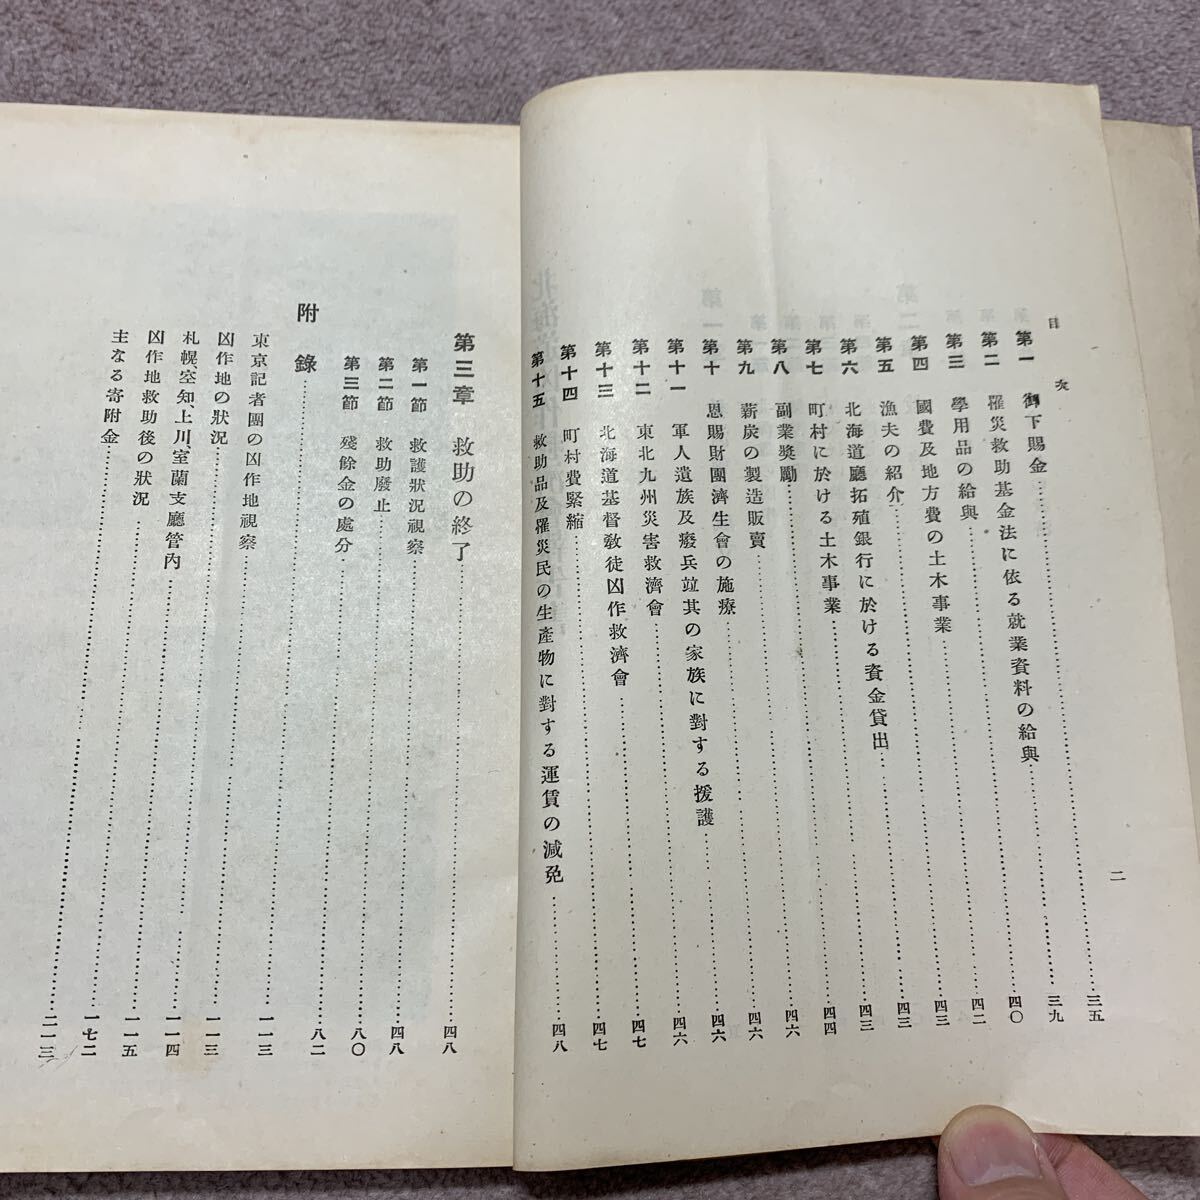 目次
二
第一 御下賜金……三五
第二 罹災救助基金法に依る就業資料の給與……三九
第三 學用品の給與……四〇
第四 國費及地方費の土木事業……四二
第五 漁夫の紹介……四三
第六 北海道廳拓殖銀行に於ける資金貸出……四三
第七 町村に於ける土木事業……四三
第八 副業奬勵……四四
第九 薪炭の製造販賣……四六
第十 恩賜財團濟生會の施療……四六
第十一 軍人遺族及癈兵竝其の家族に對する援護……四六
第十二 東北九州災害救濟會……四六
第十三 北海道基督敎徒凶作救濟會……四七
第十四 町村費緊縮……四七
第十五 救助品及罹災民の生產物に對する運賃の減免……四八
第三章 救助の終了……四八
第一節 救護狀況視察……四八
第二節 救助廢止……八〇
第三節 殘餘金の處分……八二
附錄……一一三
東京記者團の凶作地視察……一一三
凶作地の狀況……一一四
札幌、空知、上川、室蘭支廳管內……一一五
凶作地救助後の狀況……一七二
主なる寄附金……二一三